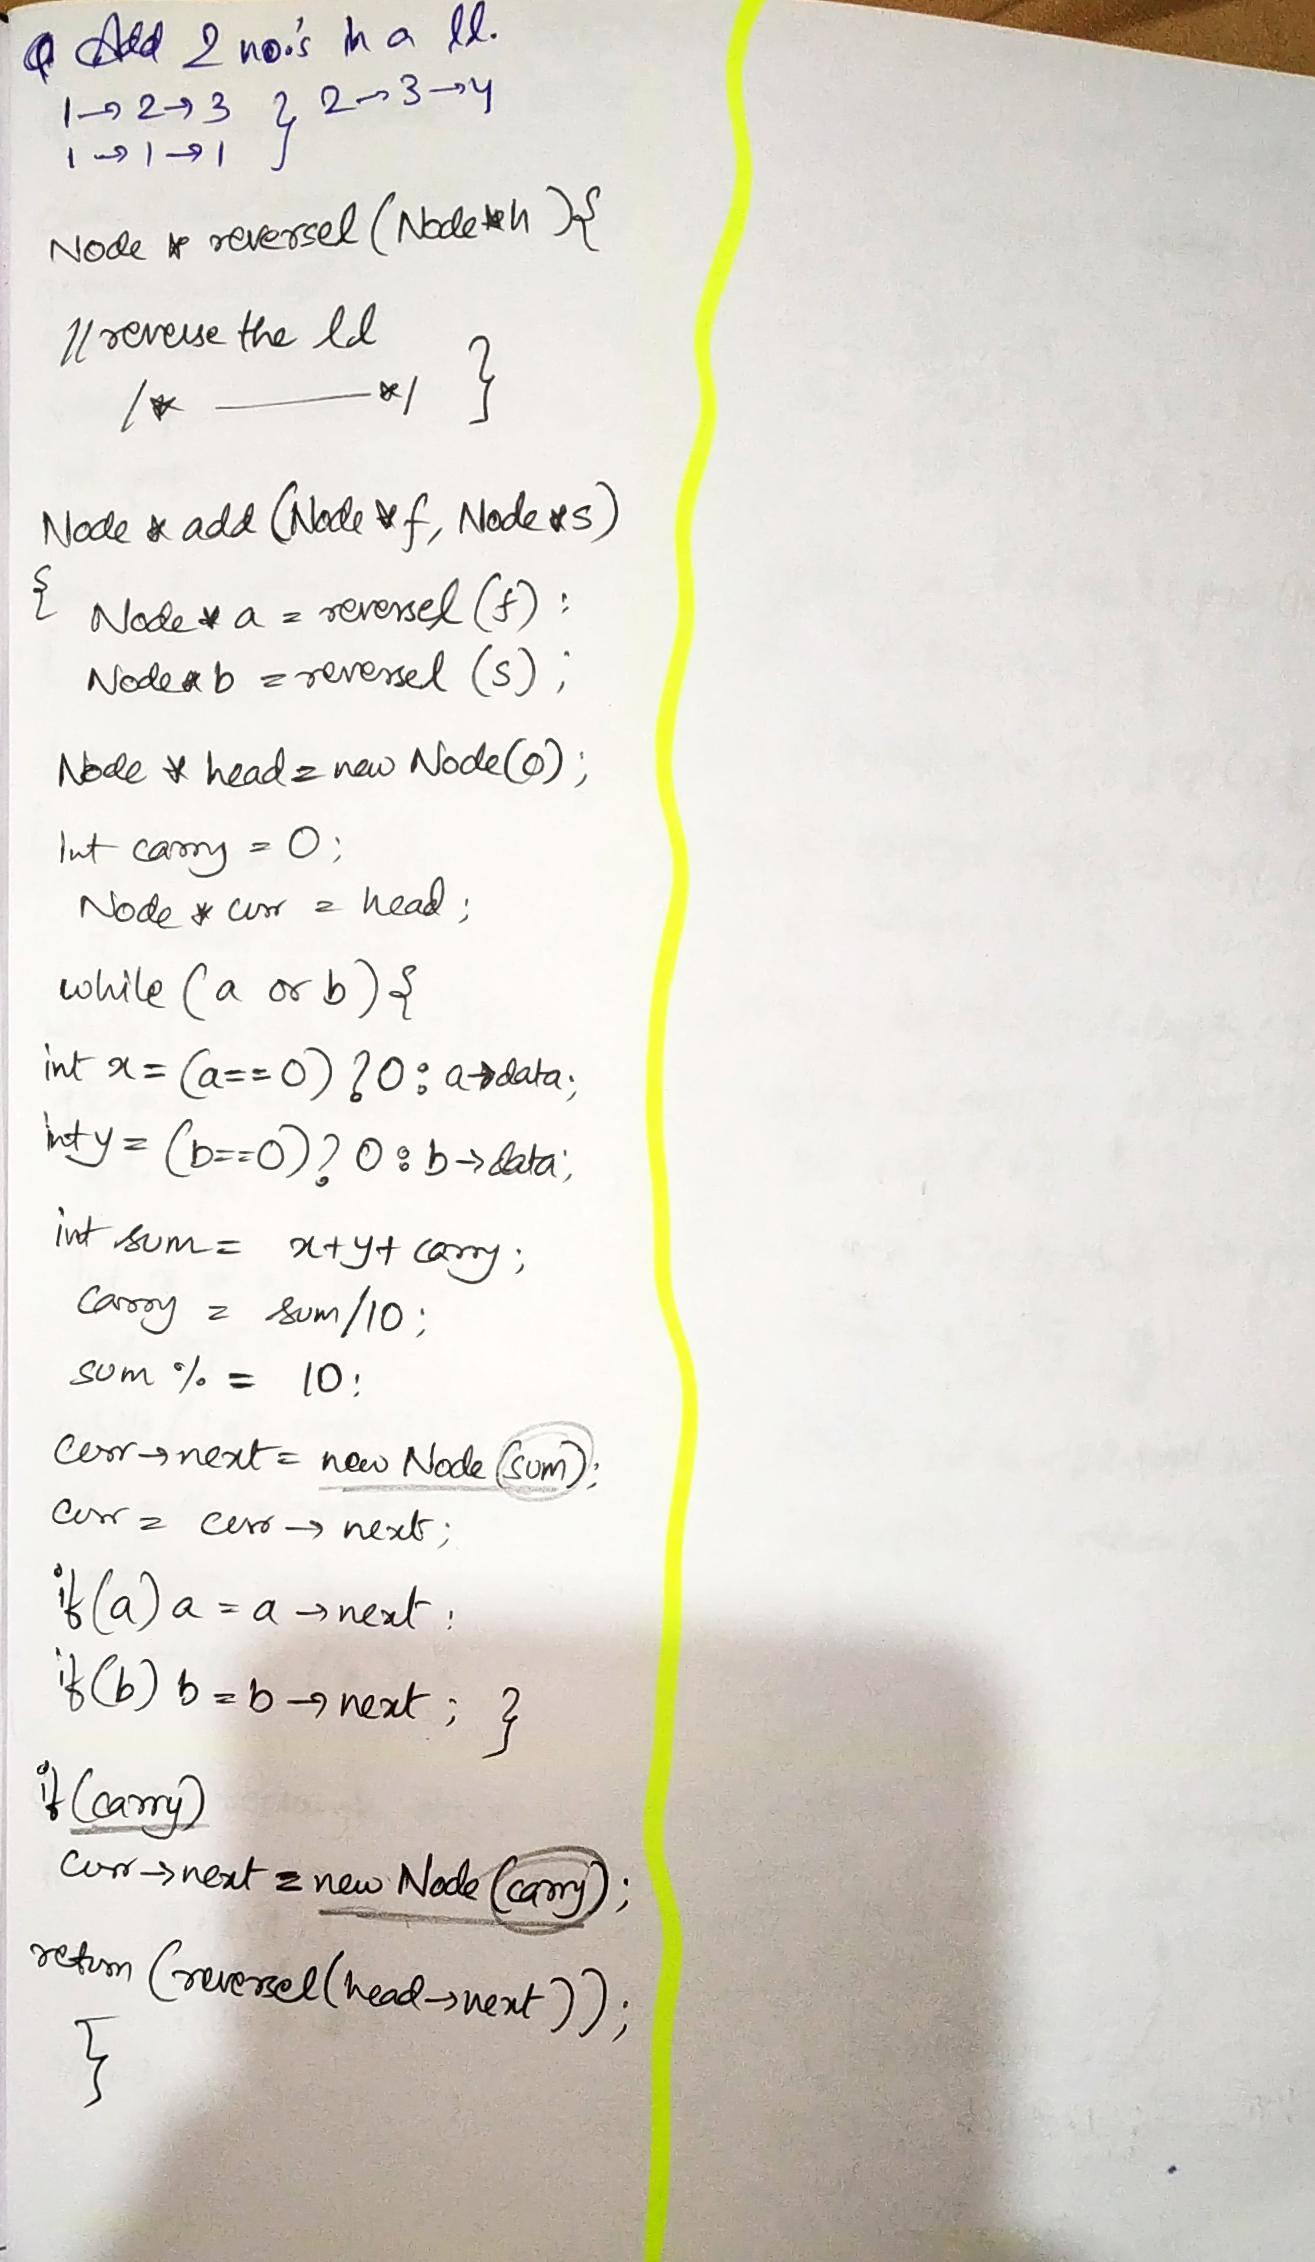 Q Add 2 no.'s in a ll.
1→2→3 } 2→3→4
1→1→1
Node * reversel (Node *h){
// reverse the ll
/* —— */ }
Node * add (Node *f, Node *s)
{ Node * a = reversel (f);
Node * b = reversel (s);
Node * head = new Node(0);
int carry = 0;
Node * curr = head;
while (a or b){
int x = (a==0)?0:a→data;
int y = (b==0)?0:b→data;
int sum = x+y+carry;
carry = sum/10;
sum %= 10;
curr→next = new Node (sum);
curr = curr→next;
if(a) a = a→next;
if(b) b = b→next; }
if (carry)
curr→next = new Node (carry);
return (reversel(head→next));
}